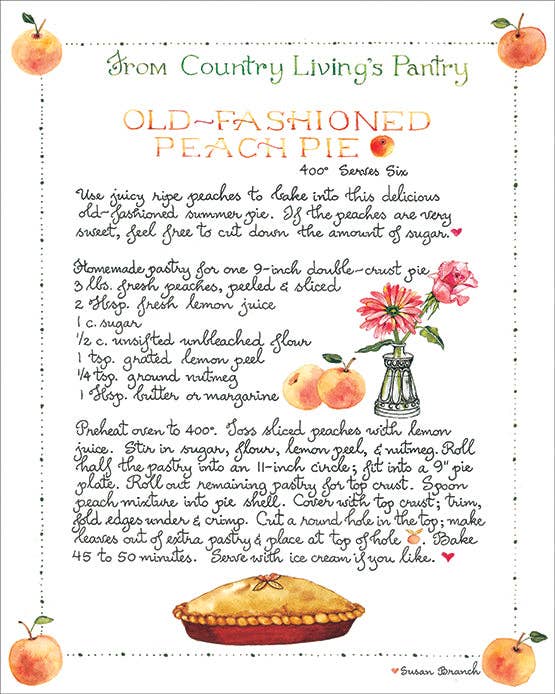 From Country Living's Pantry
OLD-FASHIONED
PEACH PIE
400° Serves Six
Use juicy ripe peaches to bake into this delicious
old-fashioned summer pie. If the peaches are very
sweet, feel free to cut down the amount of sugar.
Homemade pastry for one 9-inch double-crust pie
3 lbs. fresh peaches, peeled & sliced
2 Tbsp. fresh lemon juice
1 c. sugar
1/2 c. unsifted unbleached flour
1 tsp. grated lemon peel
1/4 tsp. ground nutmeg
1 Tbsp. butter or margarine
Preheat oven to 400°. Toss sliced peaches with lemon
juice. Stir in sugar, flour, lemon peel, & nutmeg. Roll
half the pastry into an 11-inch circle; fit into a 9" pie
plate. Roll out remaining pastry for top crust. Spoon
peach mixture into pie shell. Cover with top crust; trim,
fold edges under & crimp. Cut a round hole in the top; make
leaves out of extra pastry & place at top of hole. Bake
45 to 50 minutes. Serve with ice cream if you like.
Susan Branch